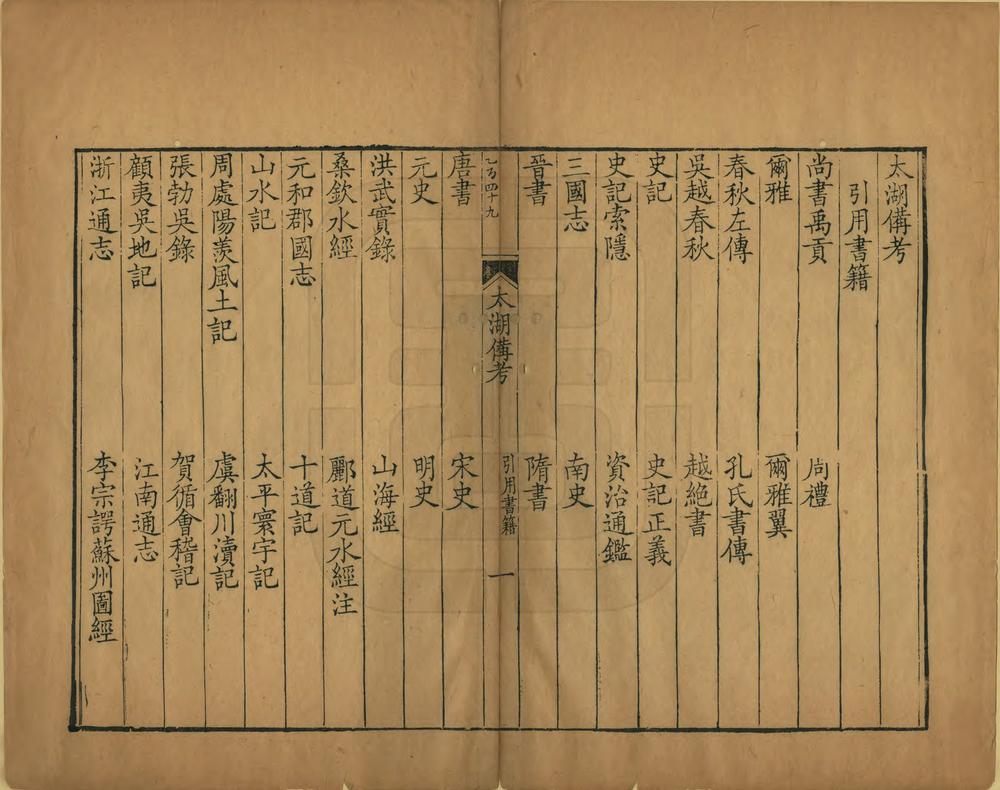 太湖備考
引用書籍
尚書禹貢　周禮
爾雅　爾雅翼
春秋左傳　孔氏書傳
吳越春秋　越絶書
史記　史記正義
史記索隱　資治通鑑
三國志　南史
晉書　隋書
太湖備考　引用書籍　一
唐書　宋史
元史　明史
洪武實錄　山海經
桑欽水經　酈道元水經注
元和郡國志　十道記
山水記　太平寰宇記
周處陽羨風土記　虞翻川瀆記
張勃吳錄　賀循會稽記
顧夷吳地記　江南通志
浙江通志　李宗諤蘇州圖經